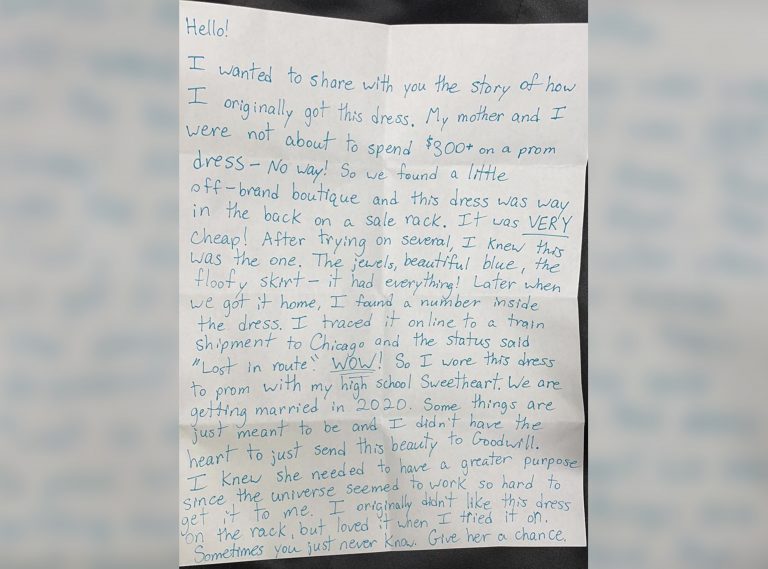 Hello!
I wanted to share with you the story of how
I originally got this dress. My mother and I
were not about to spend $300+ on a prom
dress - No way! So we found a little
off-brand boutique and this dress was way
in the back on a sale rack. It was VERY
cheap! After trying on several, I knew this
was the one. The jewels, beautiful blue, the
floofy skirt - it had everything! Later when
we got it home, I found a number inside
the dress. I traced it online to a train
shipment to Chicago and the status said
"Lost in route" WOW! So I wore this dress
to prom with my high school Sweetheart. We are
getting married in 2020. Some things are
just meant to be and I didn't have the
heart to just send this beauty to Goodwill.
I knew she needed to have a greater purpose
since the universe seemed to work so hard to
get it to me. I originally didn't like this dress
on the rack, but loved it when I tried it on.
Sometimes you just never know. Give her a chance.